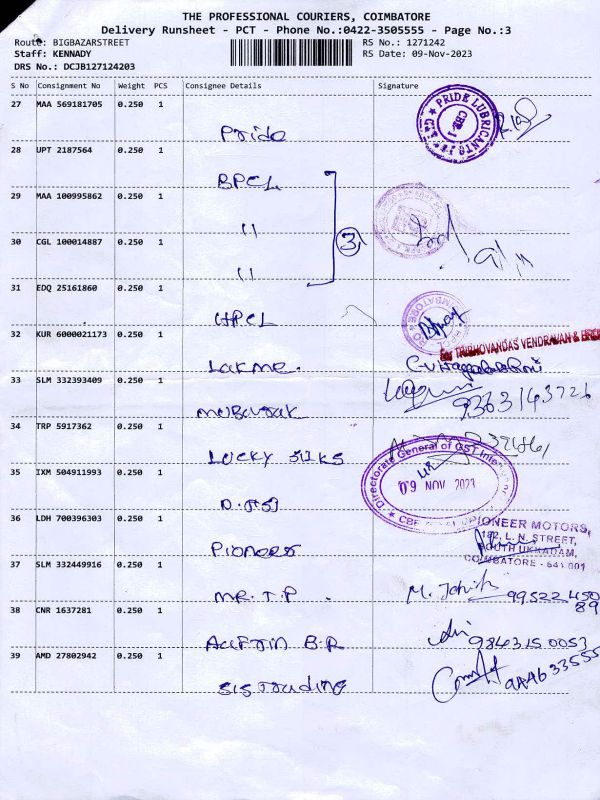 THE PROFESSIONAL COURIERS, COIMBATORE
Delivery Runsheet - PCT - Phone No.:0422-3505555 - Page No.:3
Route: BIGBAZARSTREET RS No.: 1271242
Staff: KENNADY RS Date: 09-Nov-2023
DRS No.: DCJB127124203
S No Consignment No Weight PCS Consignee Details Signature
27 MAA 569181705 0.250 1
Pride
PRIDE LUBRICANTS
CBE-1
28 UPT 2187564 0.250 1
BPCL
29 MAA 100995862 0.250 1
"
3
30 CGL 100014887 0.250 1
"
31 EDQ 25161860 0.250 1
HPCL
32 KUR 6000021173 0.250 1
TRIBHOVANDAS VENDRAVAN &
Lakme.
33 SLM 332393409 0.250 1
9363143726
Mubarak
34 TRP 5917362 0.250 1
Lucky Silks
Directorate General of GST
09 NOV 2023
35 IXM 504911993 0.250 1
36 LDH 700396303 0.250 1
Pioneer
PIONEER MOTORS,
182, L. N. STREET,
SOUTH UKKADAM,
COIMBATORE - 641 001
37 SLM 332449916 0.250 1
MR. T.P.
99522 450
89
38 CNR 1637281 0.250 1
B.R
984315 0053
39 AMD 27802942 0.250 1
SIS Trading